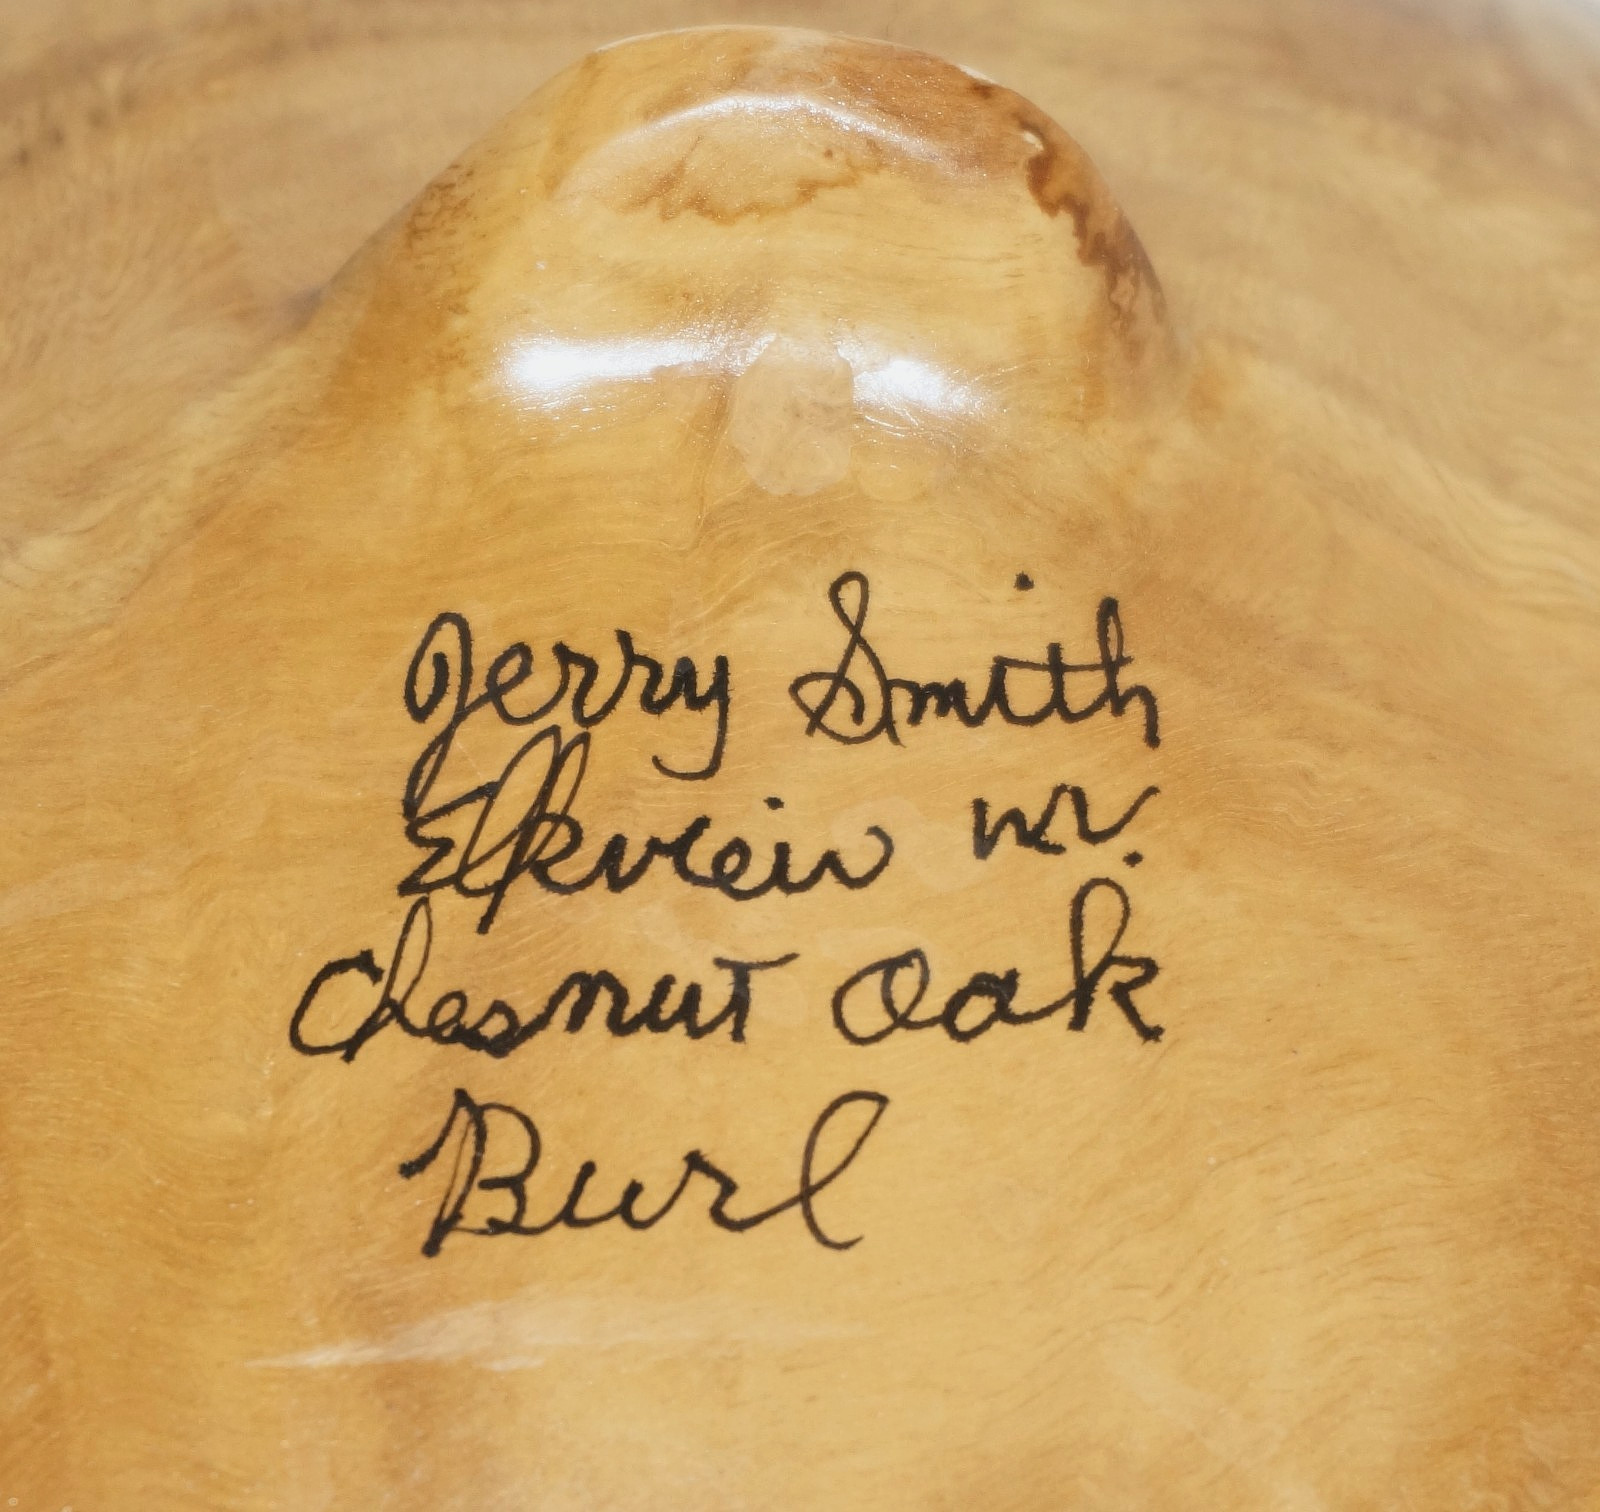 Jerry Smith
Elkview WV.
Chesnut Oak
Burl